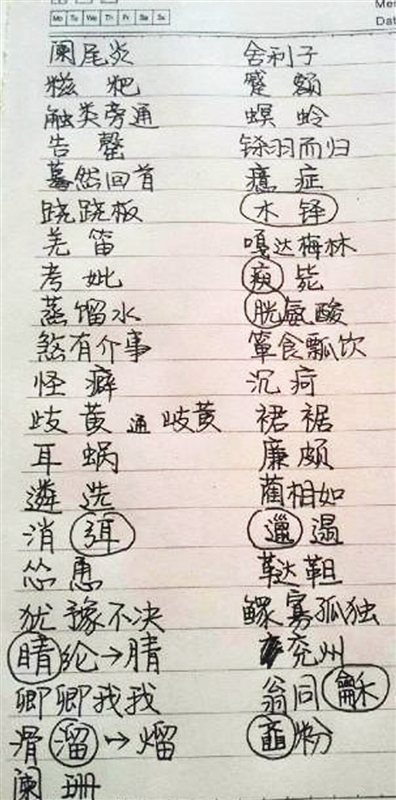 Mo Tu We Th Fr Sa Su
阑尾炎
糍粑
触类旁通
告罄
蓦然回首
跷跷板
羌笛
考妣
蒸馏水
煞有介事
怪癖
歧黄 通 岐黄
耳蜗
遴选
消弭
怂恿
犹豫不决
睛纶→腈
卿卿我我
滑溜→熘
阑珊
舍利子
蹙额
螟蛉
铩羽而归
癔症
木铎
嘎达梅林
瘐毙
胱氨酸
箪食瓢饮
沉疴
裙裾
廉颇
蔺相如
邋遢
鞑靼
鳏寡孤独
兖州
翁同龢
齑粉